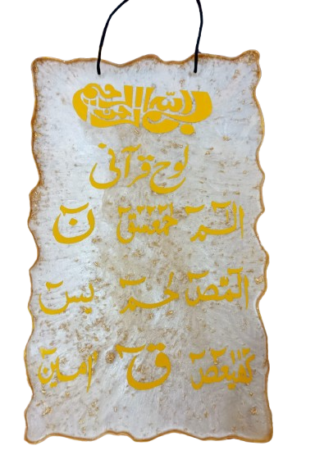 بسم الله الرحمن الرحيم
لوح قرآنی
الٓمٓ حٓمٓعٓسٓقٓ نٓ
الٓمٓصٓ حٰمٓ یٰسٓ
کٓھٰیٰعٓصٓ قٓ اٰمین